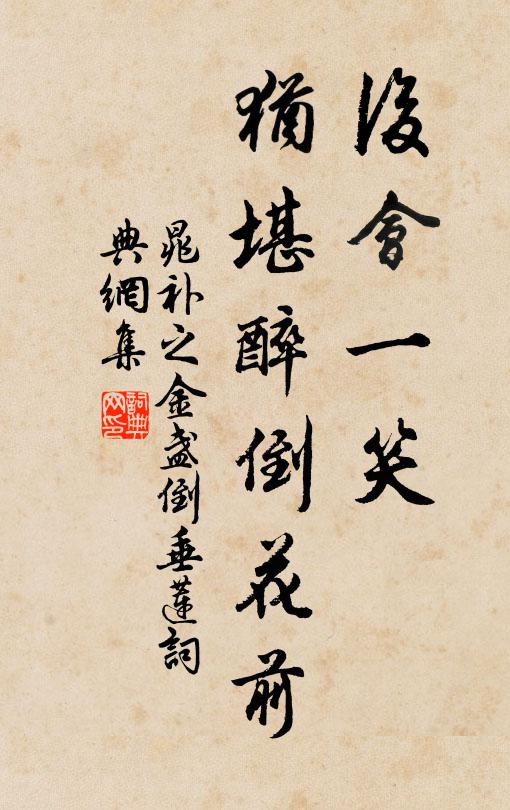 後會一笑
猶堪醉倒花前
晁补之金盞倒垂蓮詞
典網集
詞典网印